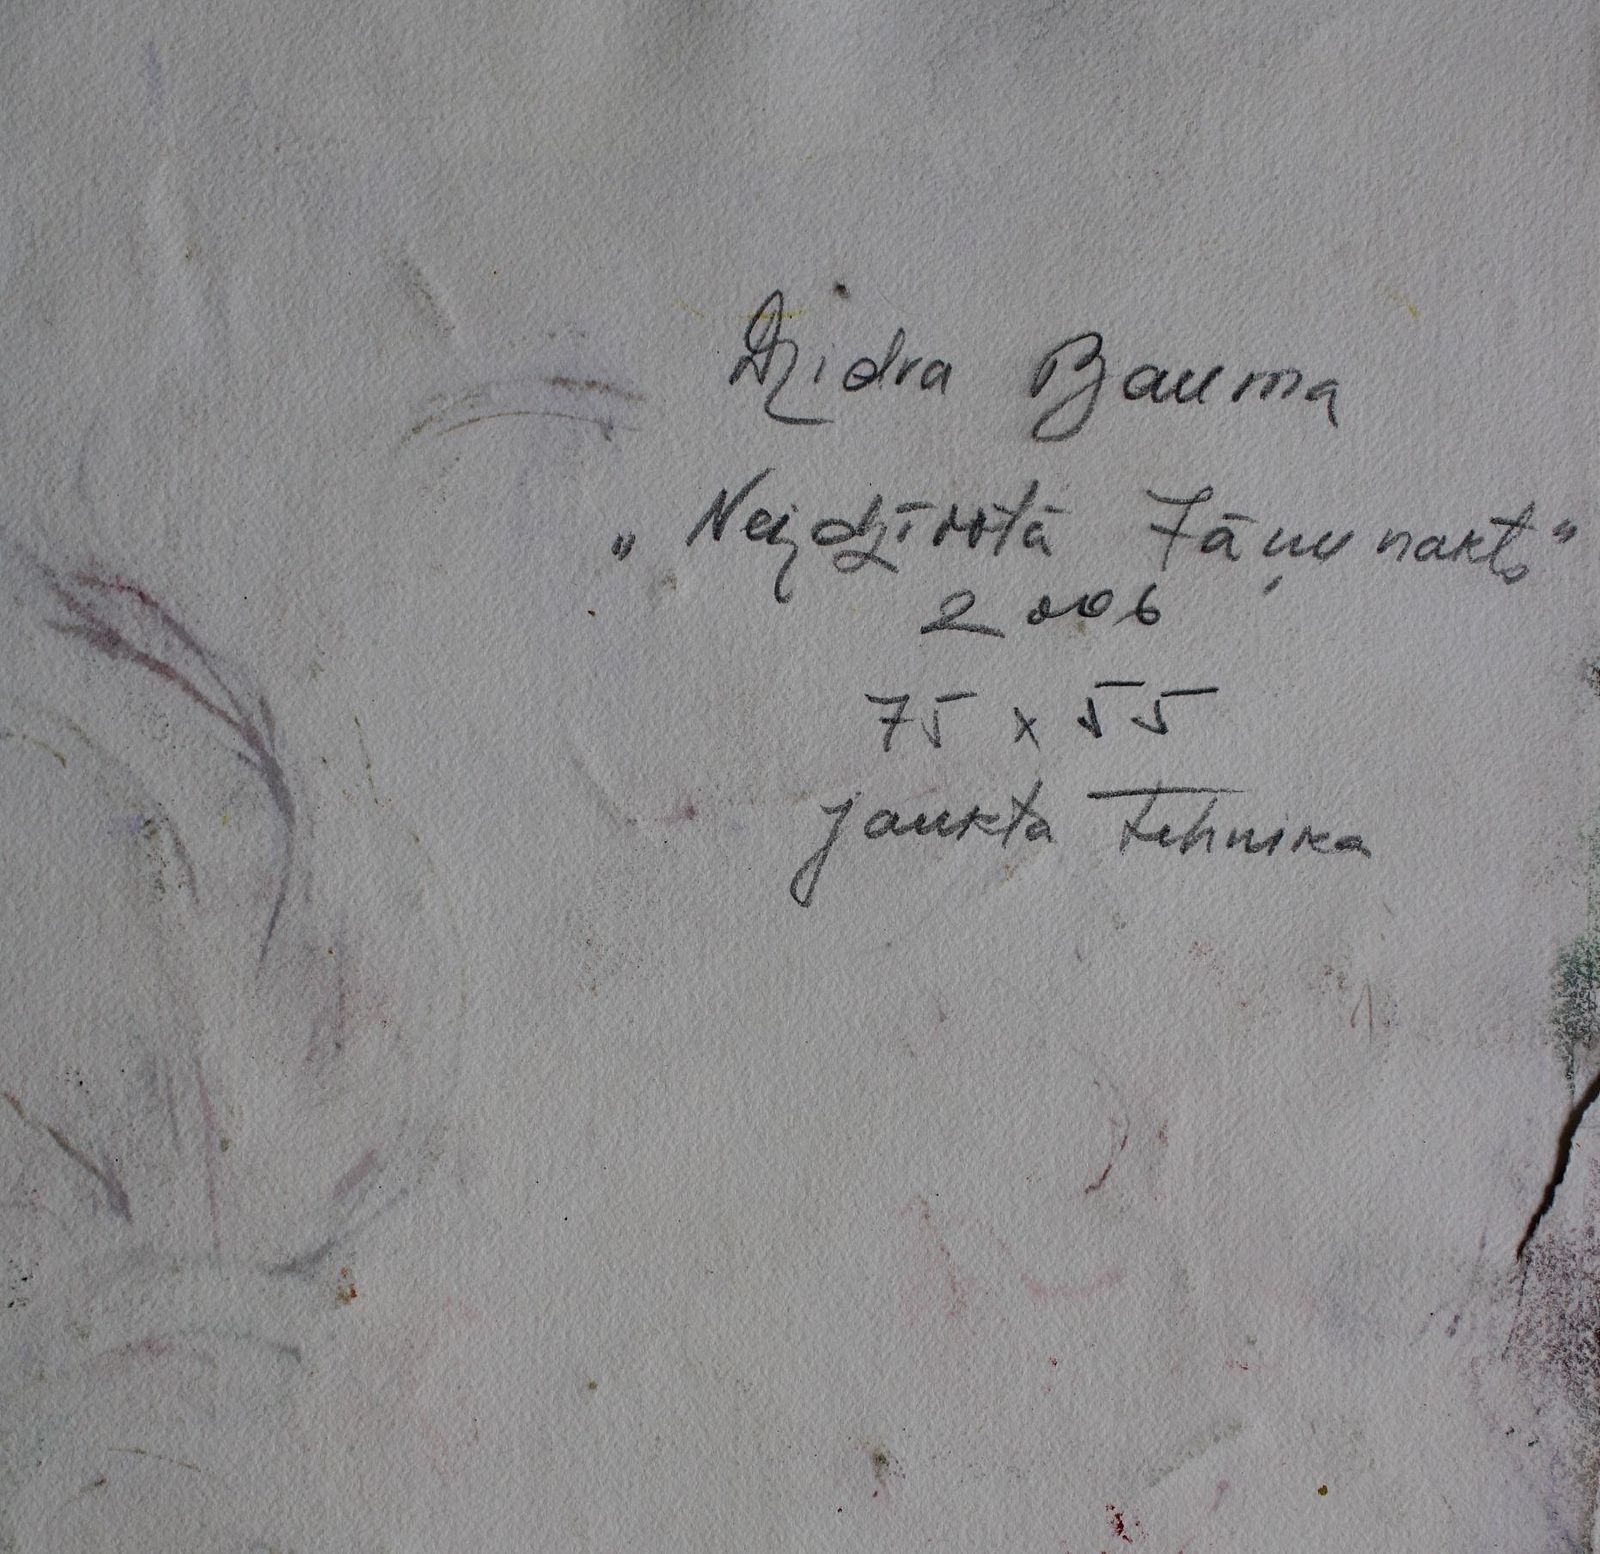 Dzidra Bauma
„Neizdzīvotā Jāņu nakts"
2006
75 x 55
jaukta tehnika